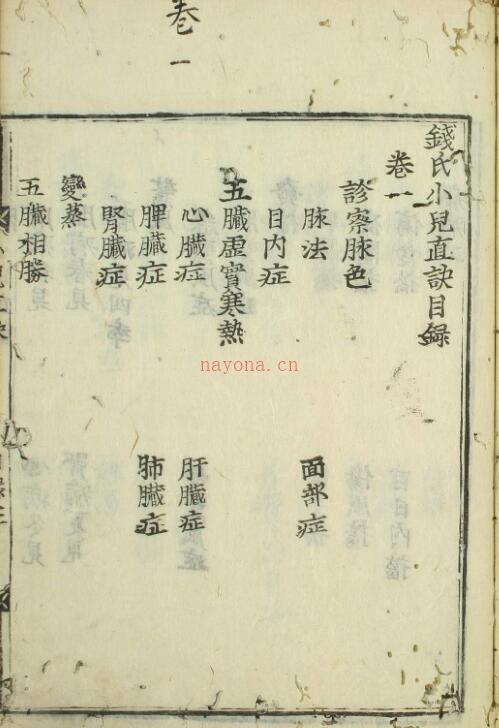 卷一
錢氏小兒直訣目録
卷一
診察脉色
脉法 面部症
目内症
五臟虛實寒熱
心臟症 肝臟症
脾臟症 肺臟症
腎臟症
變蒸
五臟相勝
nayona.cn